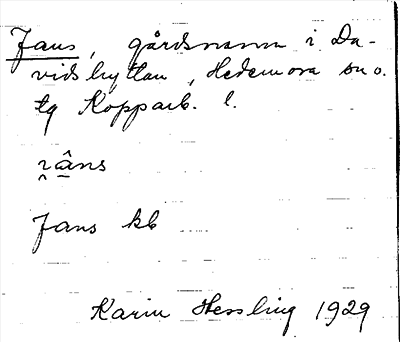 Jans, gårdsnamn i Da-
vidshyttan, Hedemora sn o.
tg Kopparb. l.
Jans kb
Karin Hessling 1929